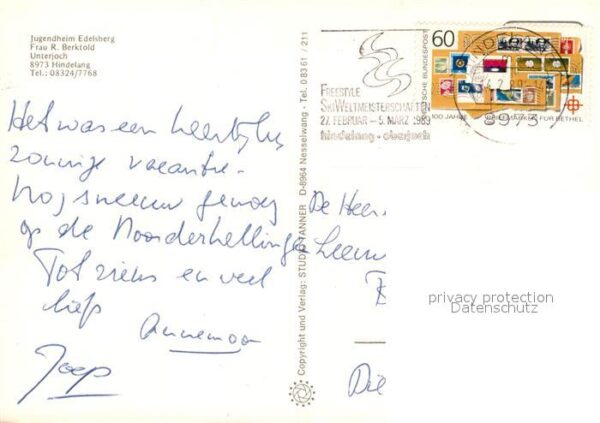 Jugendheim Edelsberg
Frau R. Berktold
Unterjoch
8973 Hindelang
Tel.: 08324/7768
Het was een heerlijke
zonnige vacantie.
Nog sneeuw genoeg
op de Noorderhellingen
Tot ziens en veel
liefs
Annemoon
Joep
Copyright und Verlag: STUDIO TANNER D-8964 Nesselwang - Tel. 0 83 61 / 211
FREESTYLE
SKIWELTMEISTERSCHAFTEN
27. FEBRUAR - 5. MÄRZ 1989
hindelang - oberjoch
60
DEUTSCHE BUNDESPOST
100 JAHRE BRIEFMARKEN FÜR BETHEL
8973
De Heer
Leeuw
Die
privacy protection
Datenschutz